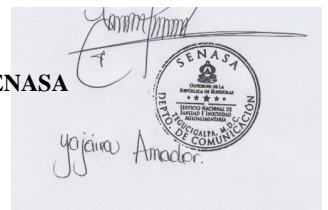 ENASA
SENASA
GOBIERNO DE LA
REPÚBLICA DE HONDURAS
SERVICIO NACIONAL DE
SANIDAD E INOCUIDAD
AGROALIMENTARIA
DEPTO. DE COMUNICACIÓN
TEGUCIGALPA, M.D.C.
yajaira Amador.